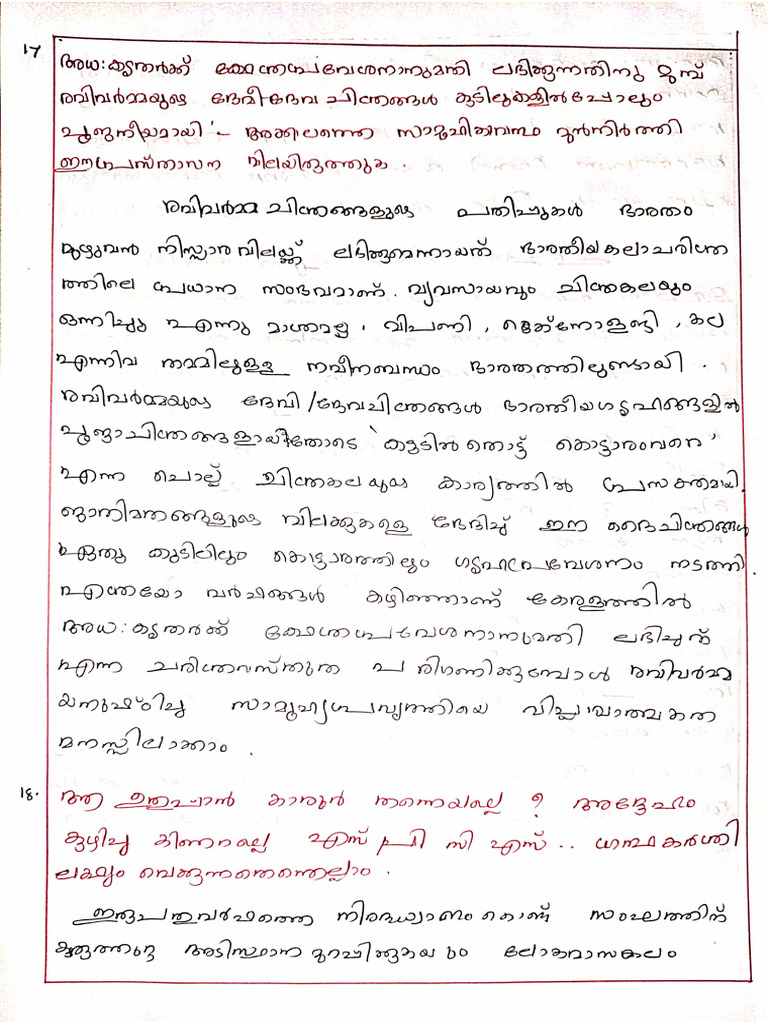 17 അധ:കൃതർക്ക് ക്ഷേത്രപ്രവേശനാനുമതി ലഭിക്കുന്നതിനു മുമ്പ്
രവിവർമ്മയുടെ ദേവീദേവ ചിത്രങ്ങൾ കുടിലുകളിൽപ്പോലും
പൂജനീയമായി '- അക്കാലത്തെ സാമൂഹികാവസ്ഥ മുൻനിർത്തി
ഈ പ്രസ്താവന വിലയിരുത്തുക.
രവിവർമ്മ ചിത്രങ്ങളുടെ പതിപ്പുകൾ ഭാരതം
മുഴുവൻ നിസ്സാര വിലയ്ക്ക് ലഭിക്കുമെന്നായത് ഭാരതീയകലാചരിത്ര
ത്തിലെ പ്രധാന സംഭവമാണ്. വ്യവസായവും ചിത്രകലയും
ഒന്നിച്ചു എന്നു മാത്രമല്ല, വിപണി, ടെക്നോളജി, കല
എന്നിവ തമ്മിലുള്ള നവീനബന്ധം ഭാരതത്തിലുണ്ടായി.
രവിവർമ്മയുടെ ദേവി/ദേവചിത്രങ്ങൾ ഭാരതീയഗൃഹങ്ങളിൽ
പൂജാചിത്രങ്ങളായതോടെ 'കുടിൽതൊട്ട് കൊട്ടാരംവരെ'
എന്ന ചൊല്ല് ചിത്രകലയുടെ കാര്യത്തിൽ പ്രസക്തമായി.
ജാതിമതങ്ങളുടെ വിലക്കുകളെ ഭേദിച്ച് ഈ ദൈവചിത്രങ്ങൾ
ഏതു കുടിലിലും കൊട്ടാരത്തിലും ഗൃഹപ്രവേശനം നടത്തി.
എത്രയോ വർഷങ്ങൾ കഴിഞ്ഞാണ് കേരളത്തിൽ
അധ:കൃതർക്ക് ക്ഷേത്രപ്രവേശനാനുമതി ലഭിച്ചത്
എന്ന ചരിത്രവസ്തുത പരിഗണിക്കുമ്പോൾ രവിവർമ്മ
യനുഷ്ഠിച്ച സാമൂഹ്യപ്രവൃത്തിയെ വിപ്ലവാത്മകത
മനസ്സിലാക്കാം.
18. ആ ഉത്ഥാൻ കാരൂർ തന്നെയല്ലെ ? അദ്ദേഹം
കുഴിച്ച കിണറല്ലെ എസ് പി സി എസ്.. ഗ്രന്ഥകർത്തി
ലക്ഷ്യം വെക്കുന്നതെന്തെല്ലാം.
ഇരുപതുവർഷത്തെ നിരന്തധ്വാനം കൊണ്ട് സംഘത്തിന്
കരുത്തുറ്റ അടിസ്ഥാന മുറപ്പിക്കുകയും ലോകവാസകലം